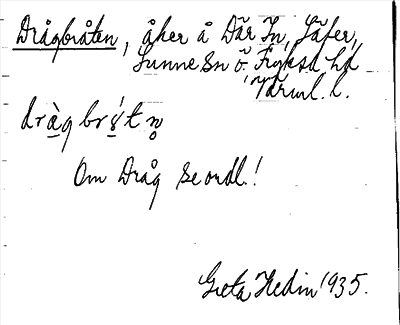 Drågbråten, åker å Där In, Säfer,
Sunne Sn Ö. Fryksd. hd
Värml. l.
dràg brɤ́t n̥
Om Dråg se ordl.!
Greta Hedin 1935.